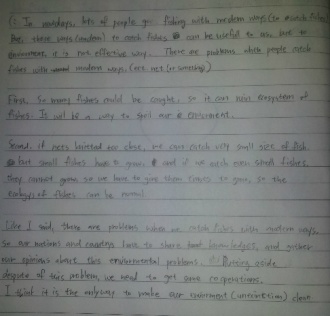 In nowdays, lots of people go fishing with modern ways (to catch fishes)
these ways (modern) to catch fishes can be useful to us, but to
it is not effective way. There are problems when people catch
fishes with modern ways. (ect. net (or something))
First, So many fishes could be caught, so it can ruin ecosystem of
fishes. It will be a way to spoil our environment.
Second, if nets too close, we can catch very small size of fish.
but small fishes have to grow, and if we catch even small fishes
They cannot grow so we have to give them times to grow, so the
ecology of fishes can be
Like I said, there are problems when we catch fishes with modern ways.
So our nations and countries have to share knowledges, and gather
our opinions about this environmental problems. Putting aside
dispute of this problem, we need to get some cooperations.
I think it is the only way to make our clean